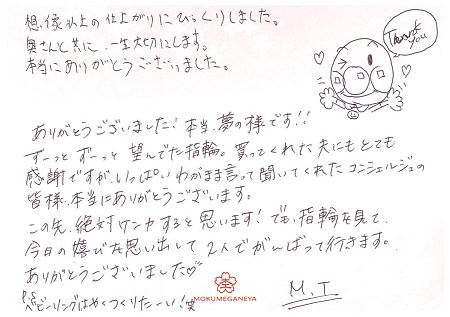 想像以上の仕上がりにびっくりしました。
奥さんと共に、一生大切にします。
本当にありがとうございました。
Thank you
ありがとうございました！本当、夢の様です！！
ずーっと ずーっと 望んでた指輪。買ってくれた夫にもとても
感謝ですが、いっぱいわがまま言って聞いてくれたコンシェルジュの
皆様、本当にありがとうございます。
この先、絶対ケンカすると思います！でも、指輪を見て、
今日の喜びを思い出して2人でがんばって行きます。
ありがとうございました♡
P.S ベビーリングはやくつくりたーい！笑
MOKUMEGANEYA
M.T